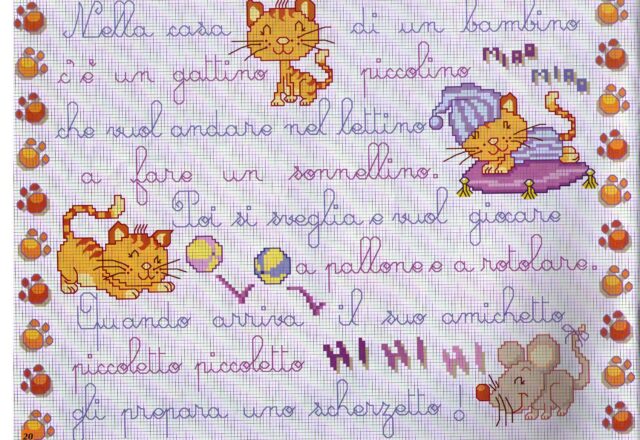 Nella casa di un bambino
c'è un gattino piccolino MIAO MIAO
che vuol andare nel lettino
a fare un sonnellino.
Poi si sveglia e vuol giocare
a pallone e a rotolare.
Quando arriva il suo amichetto
piccoletto piccoletto HI HI HI
gli prepara uno scherzetto!
20